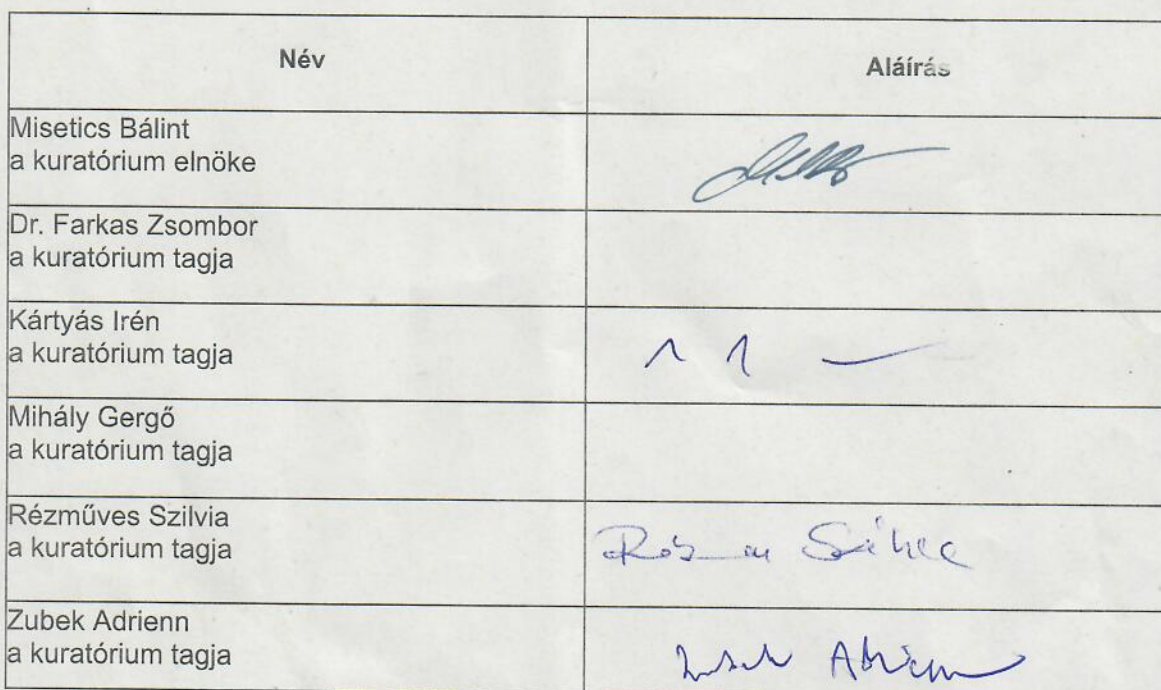 Név
Aláírás
Misetics Bálint
a kuratórium elnöke
Dr. Farkas Zsombor
a kuratórium tagja
Kártyás Irén
a kuratórium tagja
Mihály Gergő
a kuratórium tagja
Rézműves Szilvia
a kuratórium tagja
Zubek Adrienn
a kuratórium tagja